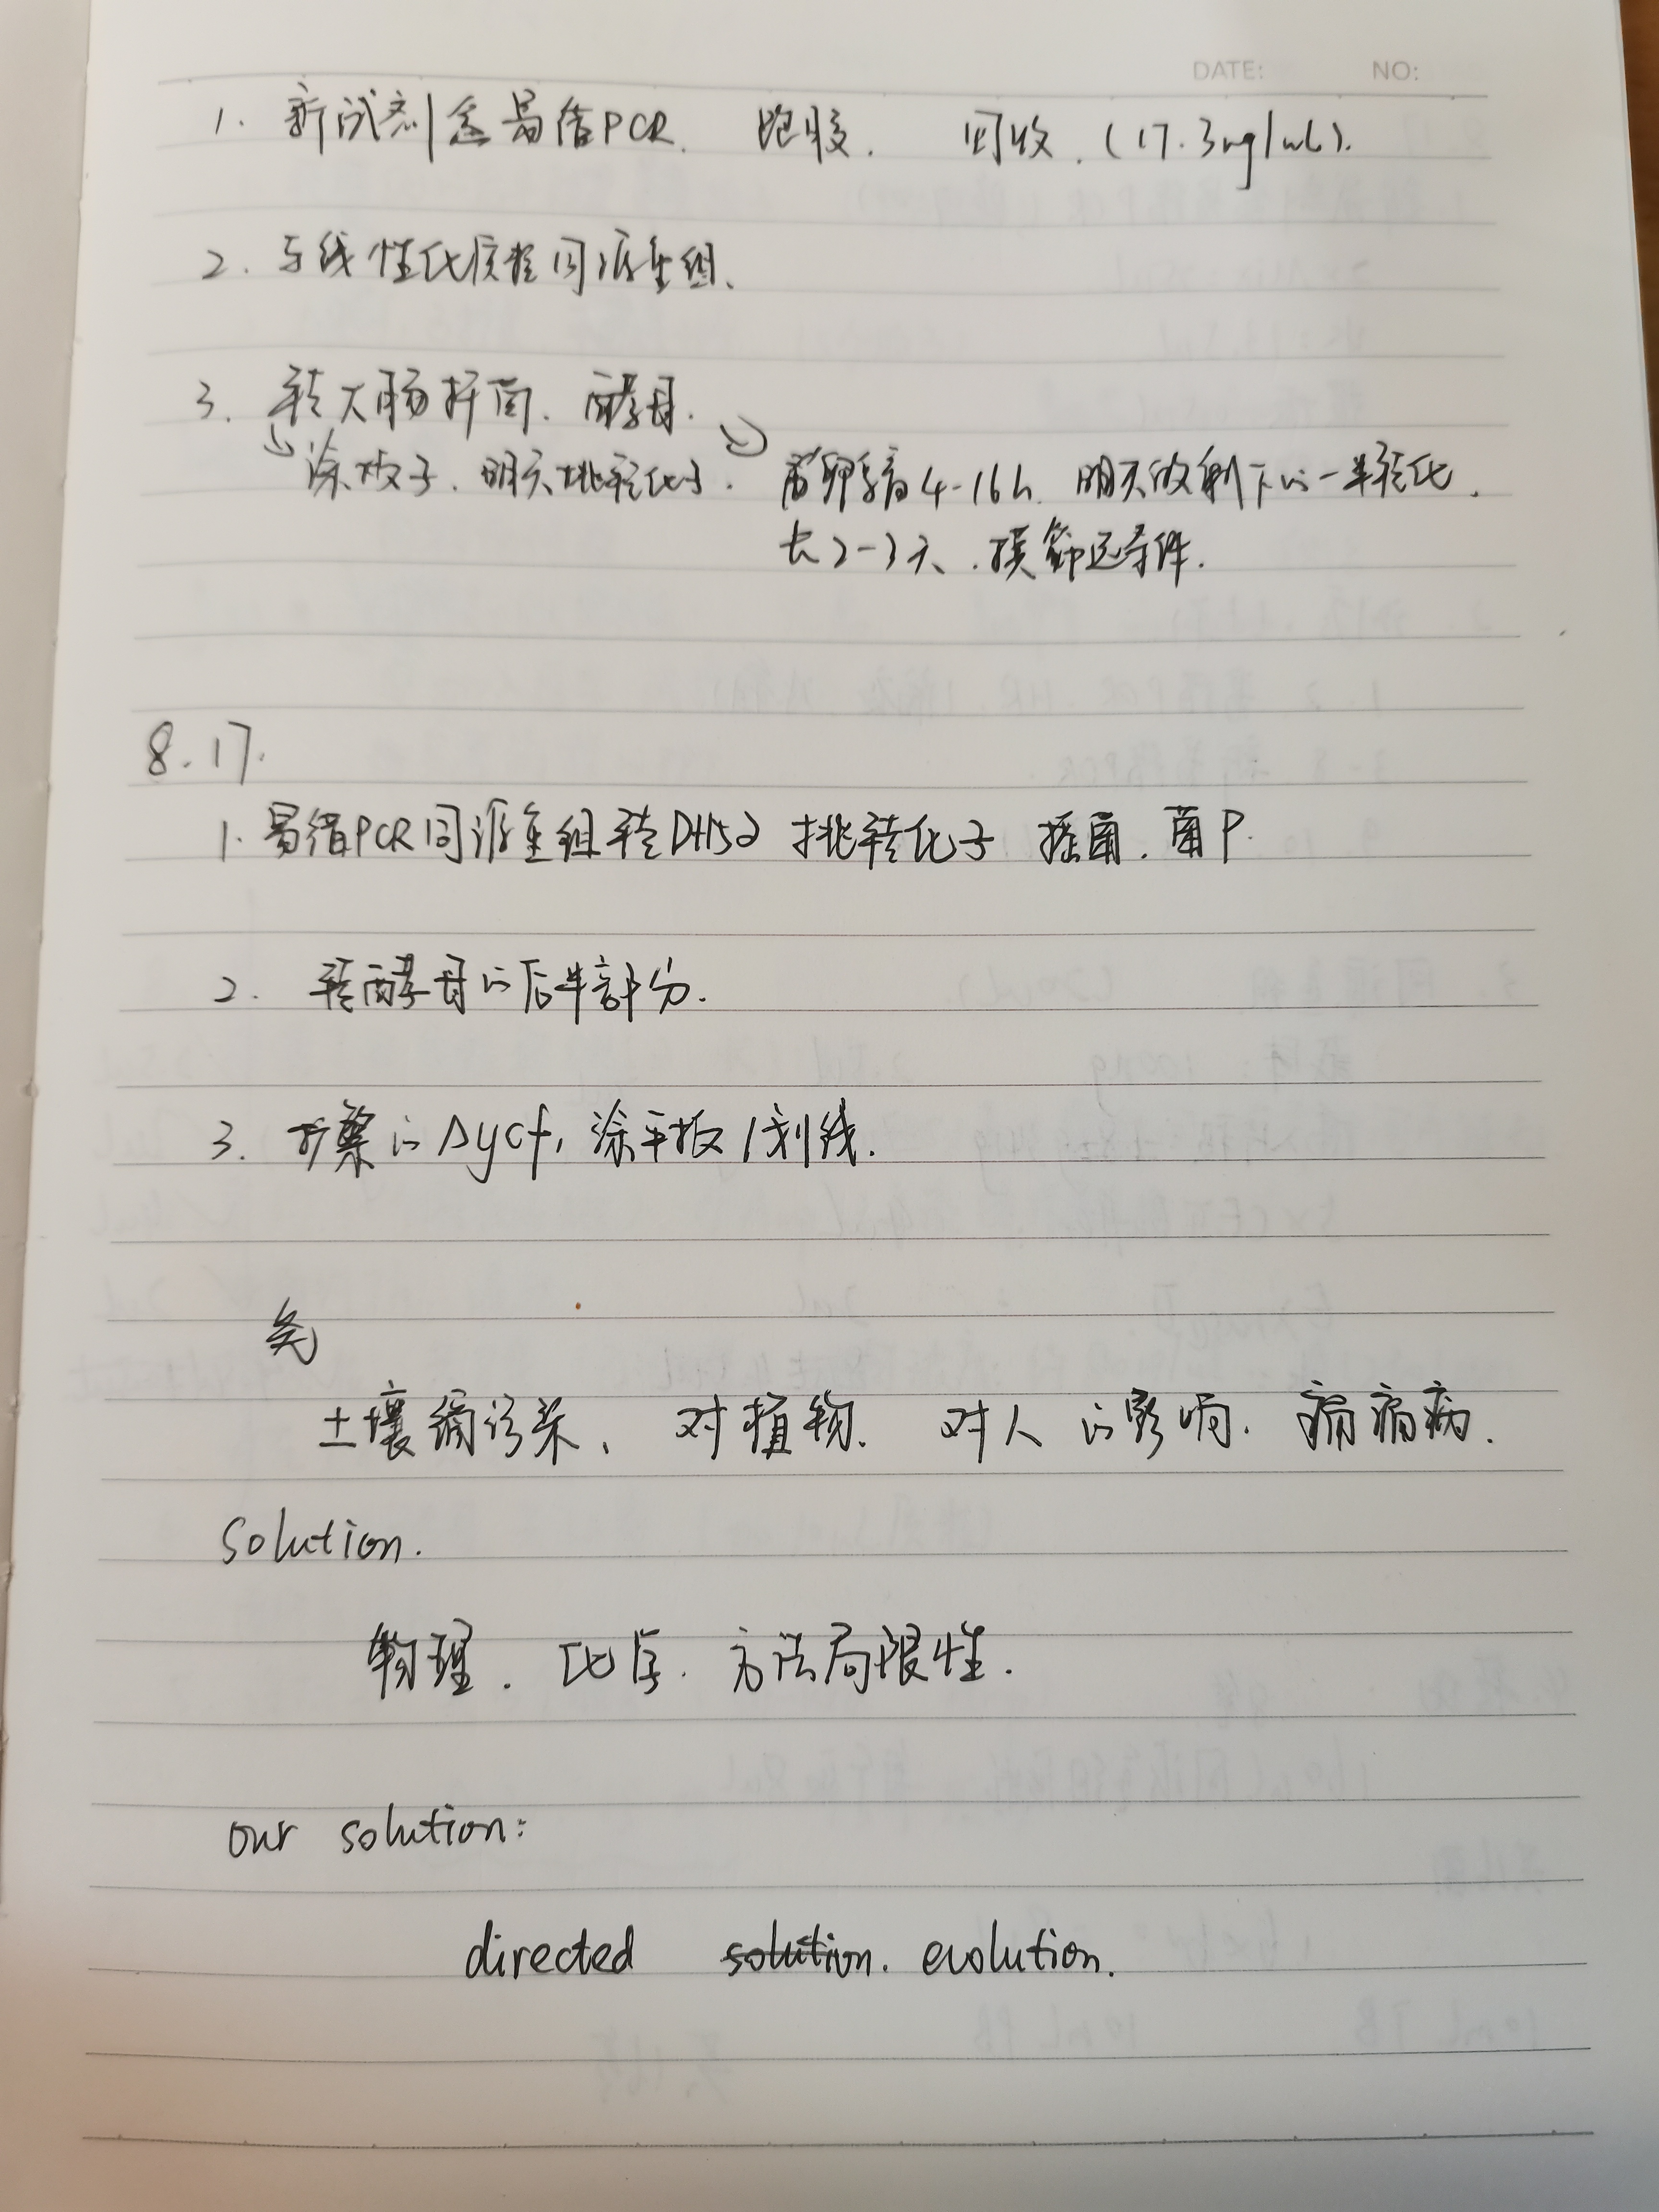 DATE: NO:
1. 新试剂盒易错PCR. 跑胶. 回收. (17.3ng/uL).
2. 与线性化质粒同源重组.
3. 转大肠杆菌. 酵母.
涂板子. 明天挑转化子. 4-16h. 明天做剩下的一半转化.
长2-3天. 摸筛选条件.
8.17.
1. 易错PCR同源重组转DH5α 挑转化子 摇菌. 菌P.
2. 转酵母的后半部分.
3. 的Δycf1 涂平板/划线.
土壤镉污染. 对植物. 对人的影响. 痛痛病.
Solution.
物理. 化学. 方法局限性.
our solution:
directed solution. evolution.